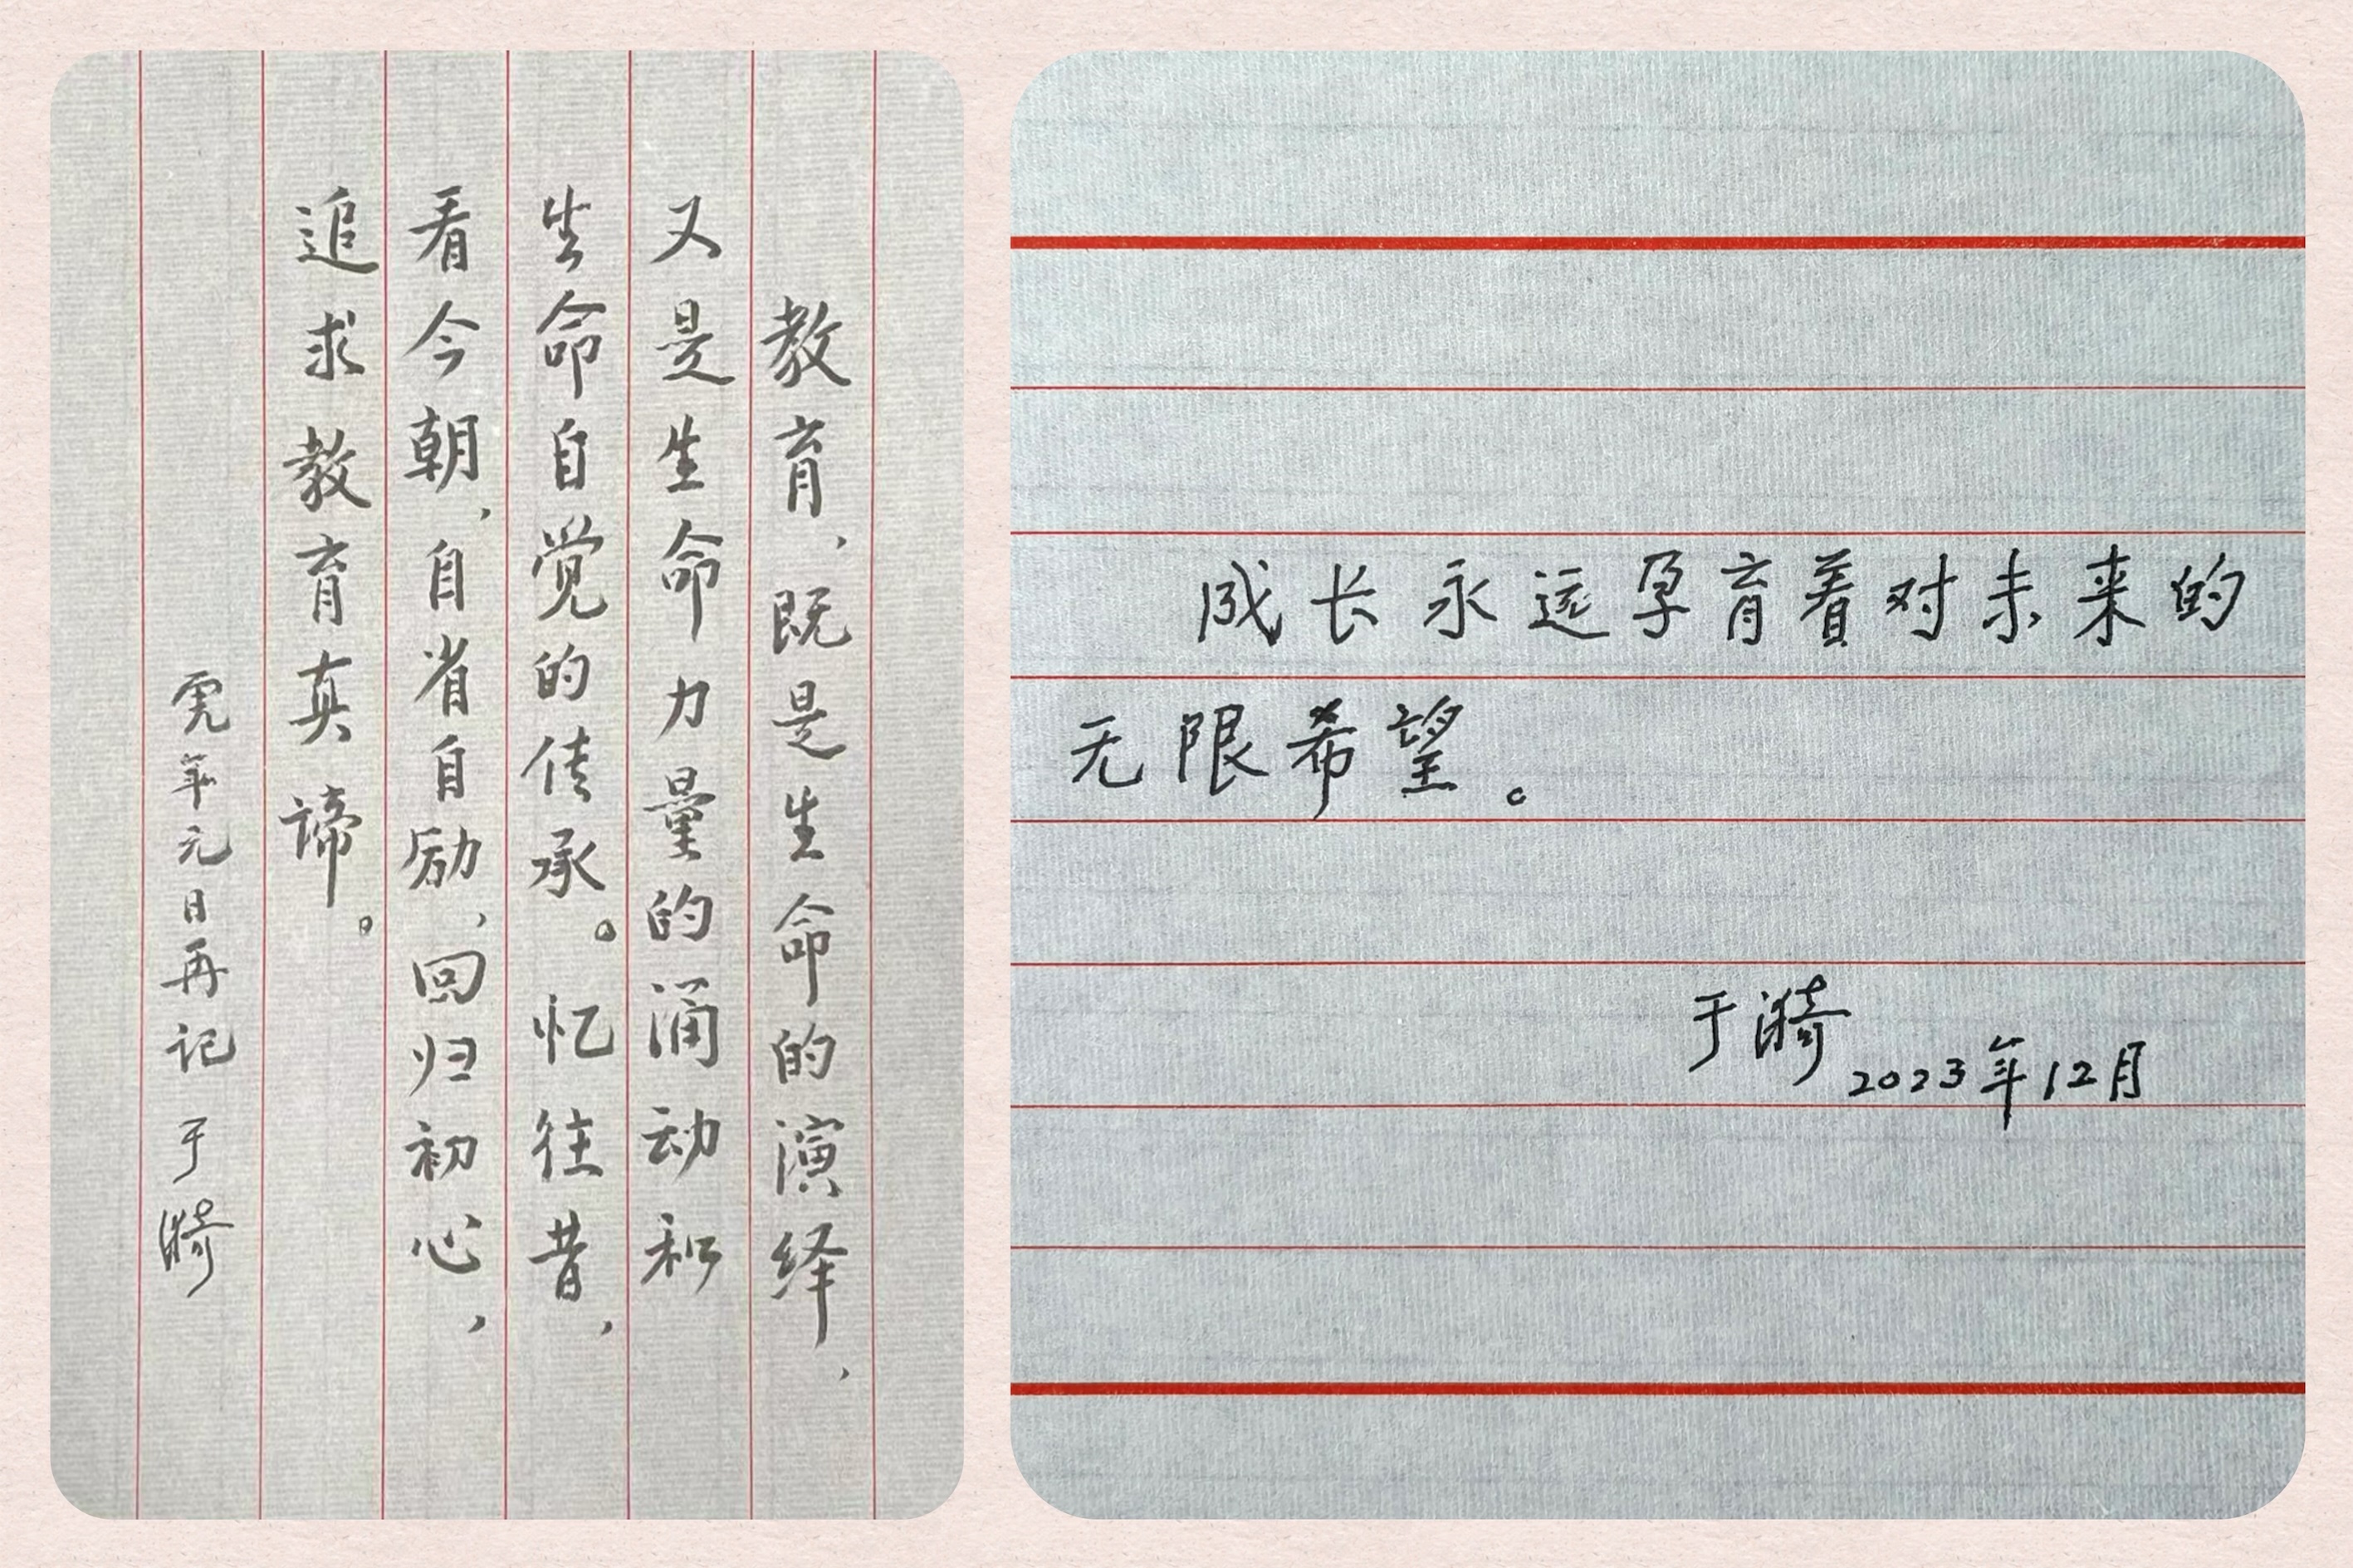 教育，既是生命的演绎，
又是生命力量的涌动和
生命自觉的传承。忆往昔，
看今朝，自省自励，回归初心，
追求教育真谛。
虎年元日再记 于漪
成长永远孕育着对未来的
无限希望。
于漪
2023年12月